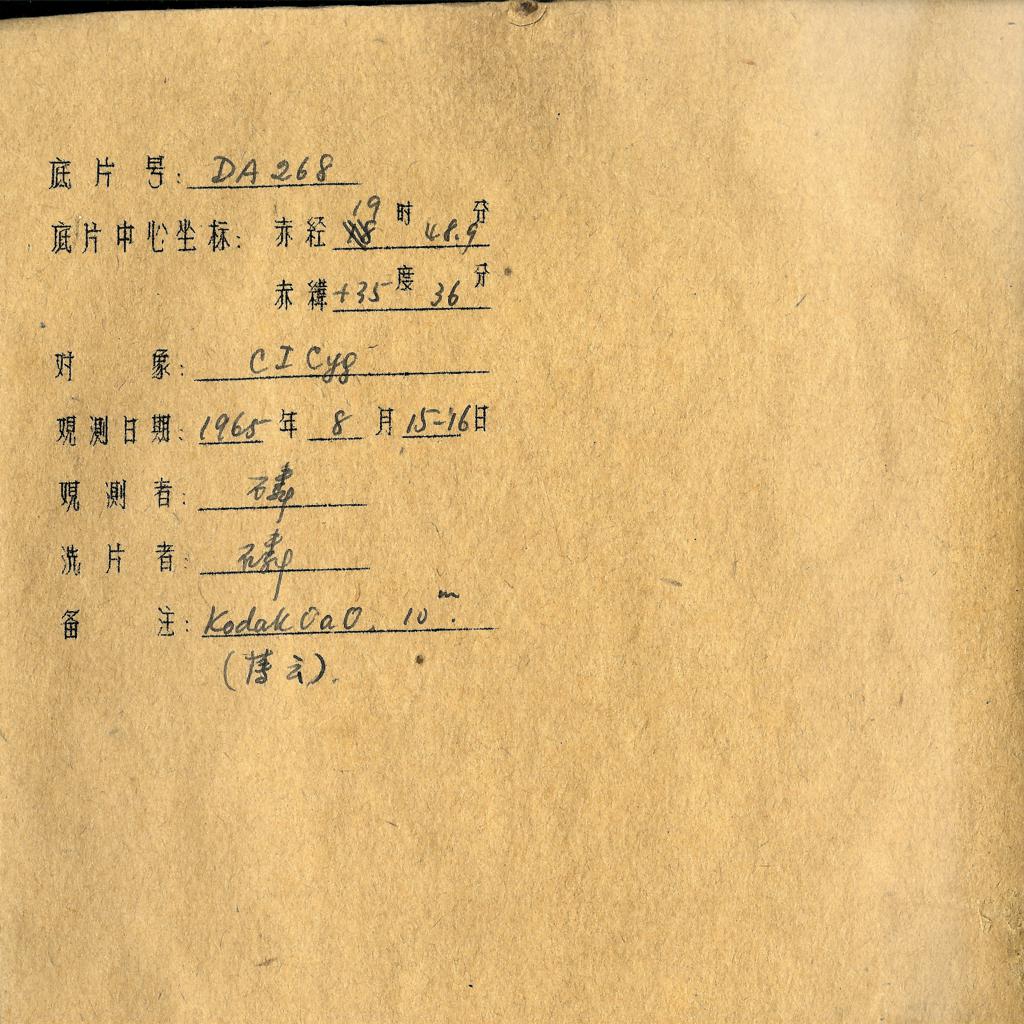 底片号: DA 268
底片中心坐标: 赤经 19时 48.9分
赤緯 +35度 36分
对象: CI Cyg
观测日期: 1965年 8月 15-16日
观测者: 磷
洗片者: 磷
备注: Kodak OaO. 10m.
(薄云).